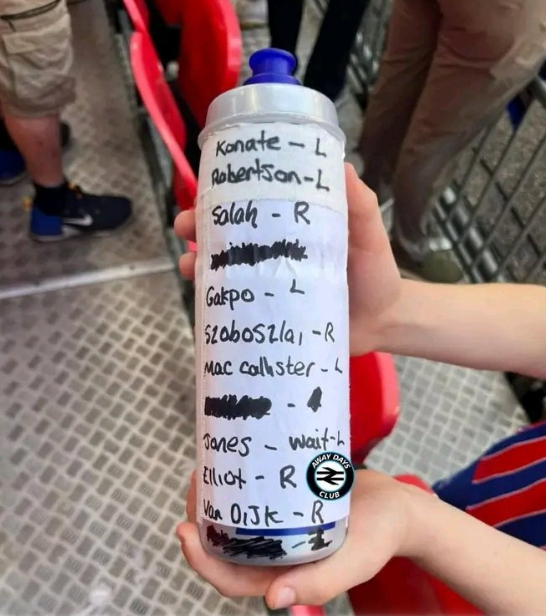 Konate - L
Robertson - L
Salah - R
Gakpo - L
Szoboszlai - R
Mac callister - L
Jones - Wait - L
Elliot - R
AWAY DAYS
CLUB
Van DiJK - R